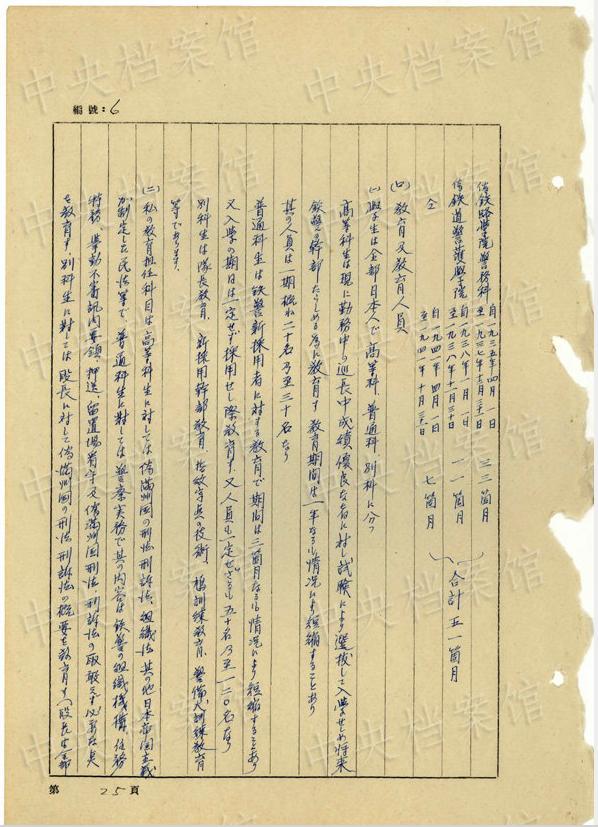 編號：6
偽鉄路学院警務科 自一九三五年四月一日 至一九三七年十二月三十一日 三三箇月
偽鉄道警護学院 自一九三八年一月一日 至一九三八年十一月三十日 一一箇月
仝 自一九四一年四月一日 至一九四一年十月三十一日 七箇月
合計五一箇月
(ロ) 教育及教育人員
(一) 学生は全部日本人で高等科、普通科、別科に分つ
高等科生は現に勤務中の巡長中成績優良な者に対し試験により選抜して入学せしめ将来
鉄警の幹部たらしめる為に教育す 教育期間は一年なるも情況により短縮することあり
其の人員は一期概ね二十名乃至三十名なり
普通科生は鉄警新採用者に対する教育で期間は三箇月なるも情況により短縮することあり
又入学の期日は一定せず採用せし際教育す、又人員も一定せざるも五十名乃至一二〇名なり
別科生は隊長教育、新採用幹部教育、技術、訓練教育、警備犬訓練教育
等であります。
(二) 私の教育担任科目は高等科生に対しては偽満洲国の刑法刑訴法、組織法 其の他日本帝国主義
が制定した民法等で 普通科生に対しては警察実務で其の内容は鉄警の組織機構、任務
特務、挙動不審訊問要領、押送、留置場看守及偽満洲国刑法、刑訴法の取敢えず必要な点
を教育す、別科生に対しては段長に対して偽満洲国の刑法刑訴法の概要を教育す（段長は全部
第 25 頁
中央档案馆